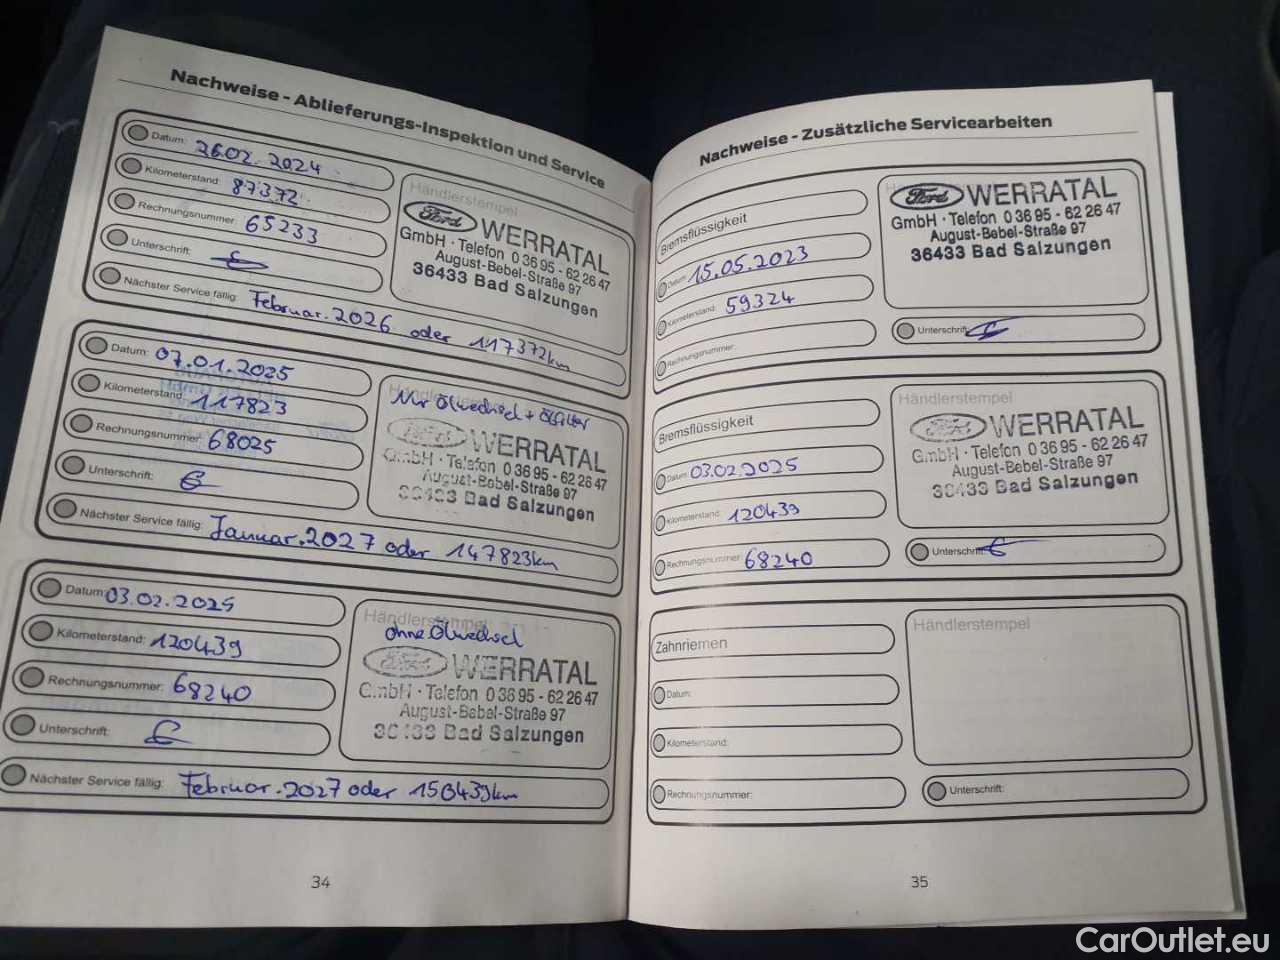 Nachweise - Ablieferungs-Inspektion und Service
Datum: 26.02.2024
Kilometerstand: 87372
Rechnungsnummer: 65233
Unterschrift:
Nächster Service fällig: Februar.2026 oder 117372km
Händlerstempel
Ford WERRATAL
GmbH · Telefon 0 36 95 - 62 26 47
August-Bebel-Straße 97
36433 Bad Salzungen
Datum: 07.01.2025
Kilometerstand: 117823
Rechnungsnummer: 68025
Unterschrift:
Nächster Service fällig: Januar.2027 oder 147823km
Nur Ölwechsel + Ölfilter
Ford WERRATAL
GmbH · Telefon 0 36 95 - 62 26 47
August-Bebel-Straße 97
36433 Bad Salzungen
Datum: 03.02.2025
Kilometerstand: 120439
Rechnungsnummer: 68240
Unterschrift:
Nächster Service fällig: Februar.2027 oder 150439km
Händlerstempel
ohne Ölwechsel
Ford WERRATAL
GmbH · Telefon 0 36 95 - 62 26 47
August-Bebel-Straße 97
36433 Bad Salzungen
34
Nachweise - Zusätzliche Servicearbeiten
Bremsflüssigkeit
Datum: 15.05.2023
Kilometerstand: 59324
Rechnungsnummer:
Ford WERRATAL
GmbH · Telefon 0 36 95 - 62 26 47
August-Bebel-Straße 97
36433 Bad Salzungen
Unterschrift:
Bremsflüssigkeit
Datum: 03.02.2025
Kilometerstand: 120439
Rechnungsnummer: 68240
Händlerstempel
Ford WERRATAL
GmbH · Telefon 0 36 95 - 62 26 47
August-Bebel-Straße 97
36433 Bad Salzungen
Unterschrift:
Zahnriemen
Datum:
Kilometerstand:
Rechnungsnummer:
Händlerstempel
Unterschrift:
35
CarOutlet.eu